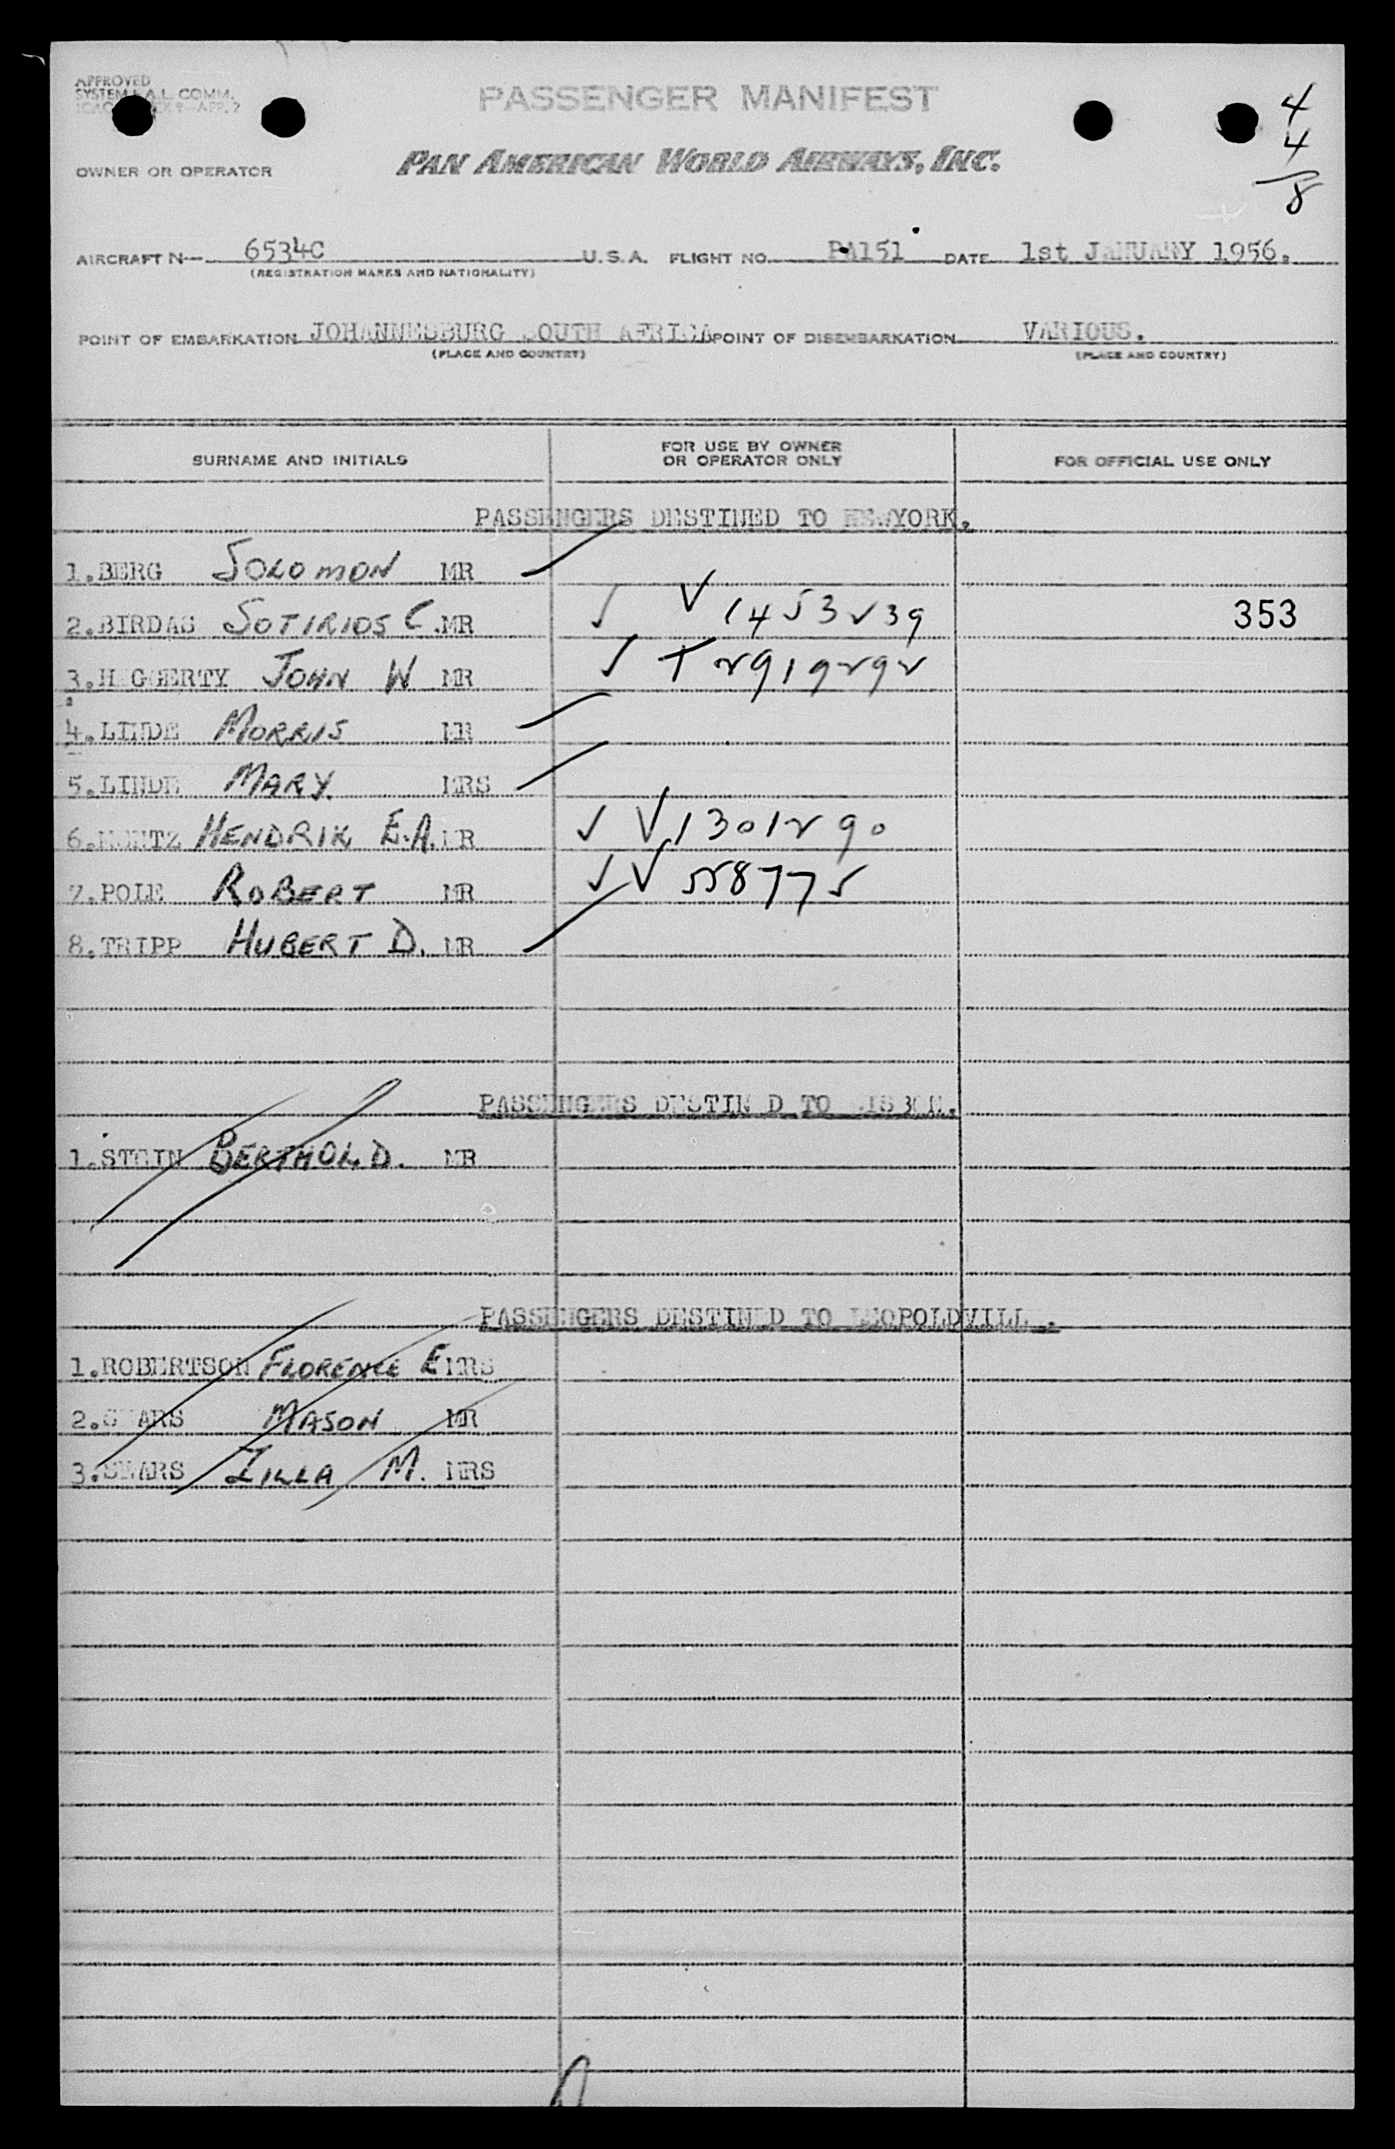 APPROVED
SYSTEM F.A.L. COMM.
PASSENGER MANIFEST
4
4
8
OWNER OR OPERATOR
PAN AMERICAN WORLD AIRWAYS, INC.
AIRCRAFT N— 6534C U.S.A. FLIGHT NO. PA151 DATE 1st JANUARY 1956.
(REGISTRATION MARKS AND NATIONALITY)
POINT OF EMBARKATION JOHANNESBURG SOUTH AFRICA POINT OF DISEMBARKATION VARIOUS.
(PLACE AND COUNTRY) (PLACE AND COUNTRY)
SURNAME AND INITIALS FOR USE BY OWNER OR OPERATOR ONLY FOR OFFICIAL USE ONLY
PASSENGERS DESTINED TO NEWYORK.
1.BERG SOLOMON MR
2.BIRDAS SOTIRIOS C.MR ✓ V 1453239 353
3.HAGGERTY JOHN W MR ✓ T 2919292
4.LINDE MORRIS MR
5.LINDE MARY. MRS
6. HENDRIK E.A. MR ✓ V 1301290
7.POLE ROBERT MR ✓ V 558775
8.TRIPP HUBERT D. MR
PASSENGERS DESTINED TO LISBON.
1.STEIN BERTHOLD. MR
PASSENGERS DESTINED TO LEOPOLDVILLE.
1.ROBERTSON FLORENCE E MRS
2.SEARS MASON MR
3.SEARS ZILLA M. MRS